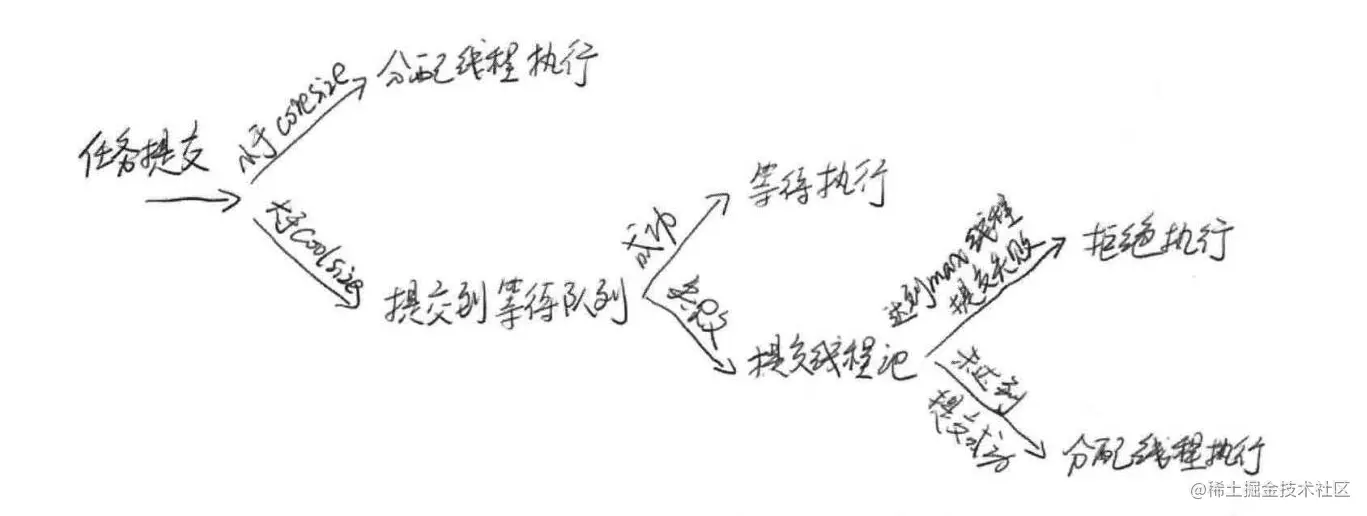 任务提交
小于coresize
分配线程执行
大于coolsize
提交到等待队列
成功
等待执行
失败
提交线程池
达到max线程
提交失败
拒绝执行
未达到
提交成功
分配线程执行
@稀土掘金技术社区